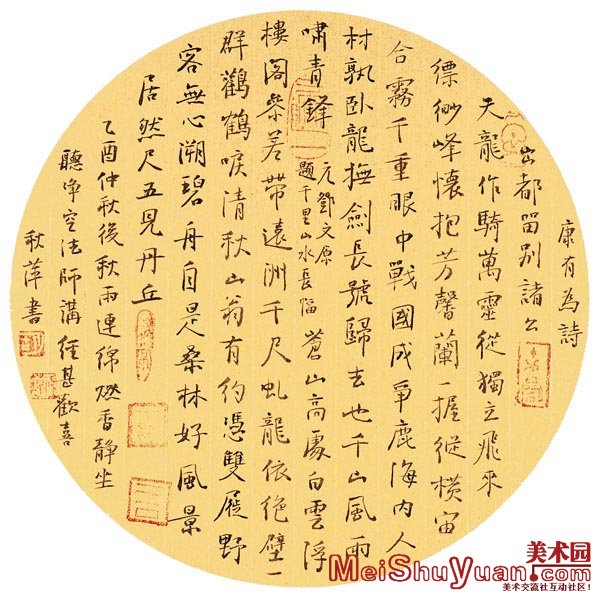 康有為詩
出都留別諸公
天龍作騎萬靈從獨立飛來
縹緲峰懷抱芳馨蘭一握縱橫宙
合霧千重眼中戰國成爭鹿海內人
材孰臥龍撫劍長號歸去也千山風雨
嘯青鋒
元鄧文原
題千里山水長幅
蒼山高處白雲浮
樓閣參差帶遠洲千尺虬龍依絕壁一
群鸛鶴唳清秋山翁有約憑雙屐野
客無心溯碧舟自是桑林好風景
居然尺五見丹丘
乙酉仲秋後秋雨連綿燃香靜坐
聽淨空法師講經甚歡喜
秋萍書
美术园
MeiShuYuan.com
美术交流社互动社区!